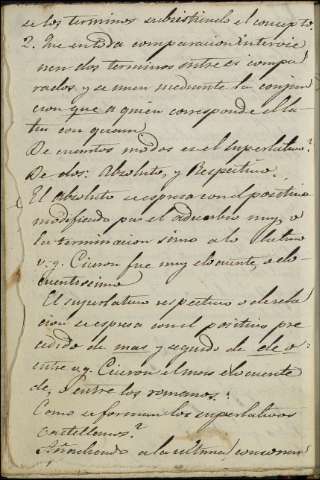 se los terminos subsistiendo el concepto.
2. Que en toda comparacion intervie
nen dos terminos entre si compa
rados, y se unen mediante la conjun
cion que a quien corresponde el la
tin con quam.
De cuantos modos es el superlativo?
De dos: Absoluto, y Respectivo.
El absoluto se espresa con el positivo
modificado por el adverbio muy, o
la terminacion simo a lo latino
v.g. Ciceron fue muy elocuente, o elo
cuentisimo
El superlativo respectivo o de rela
cion se espresa con el positivo pre
cedido de mas y seguido de de o
entre v.g. Ciceron el mas elocuente
de, o entre los romanos.
Como se forman los superlativos
castellanos?
Añadiendo a la ultima consonan